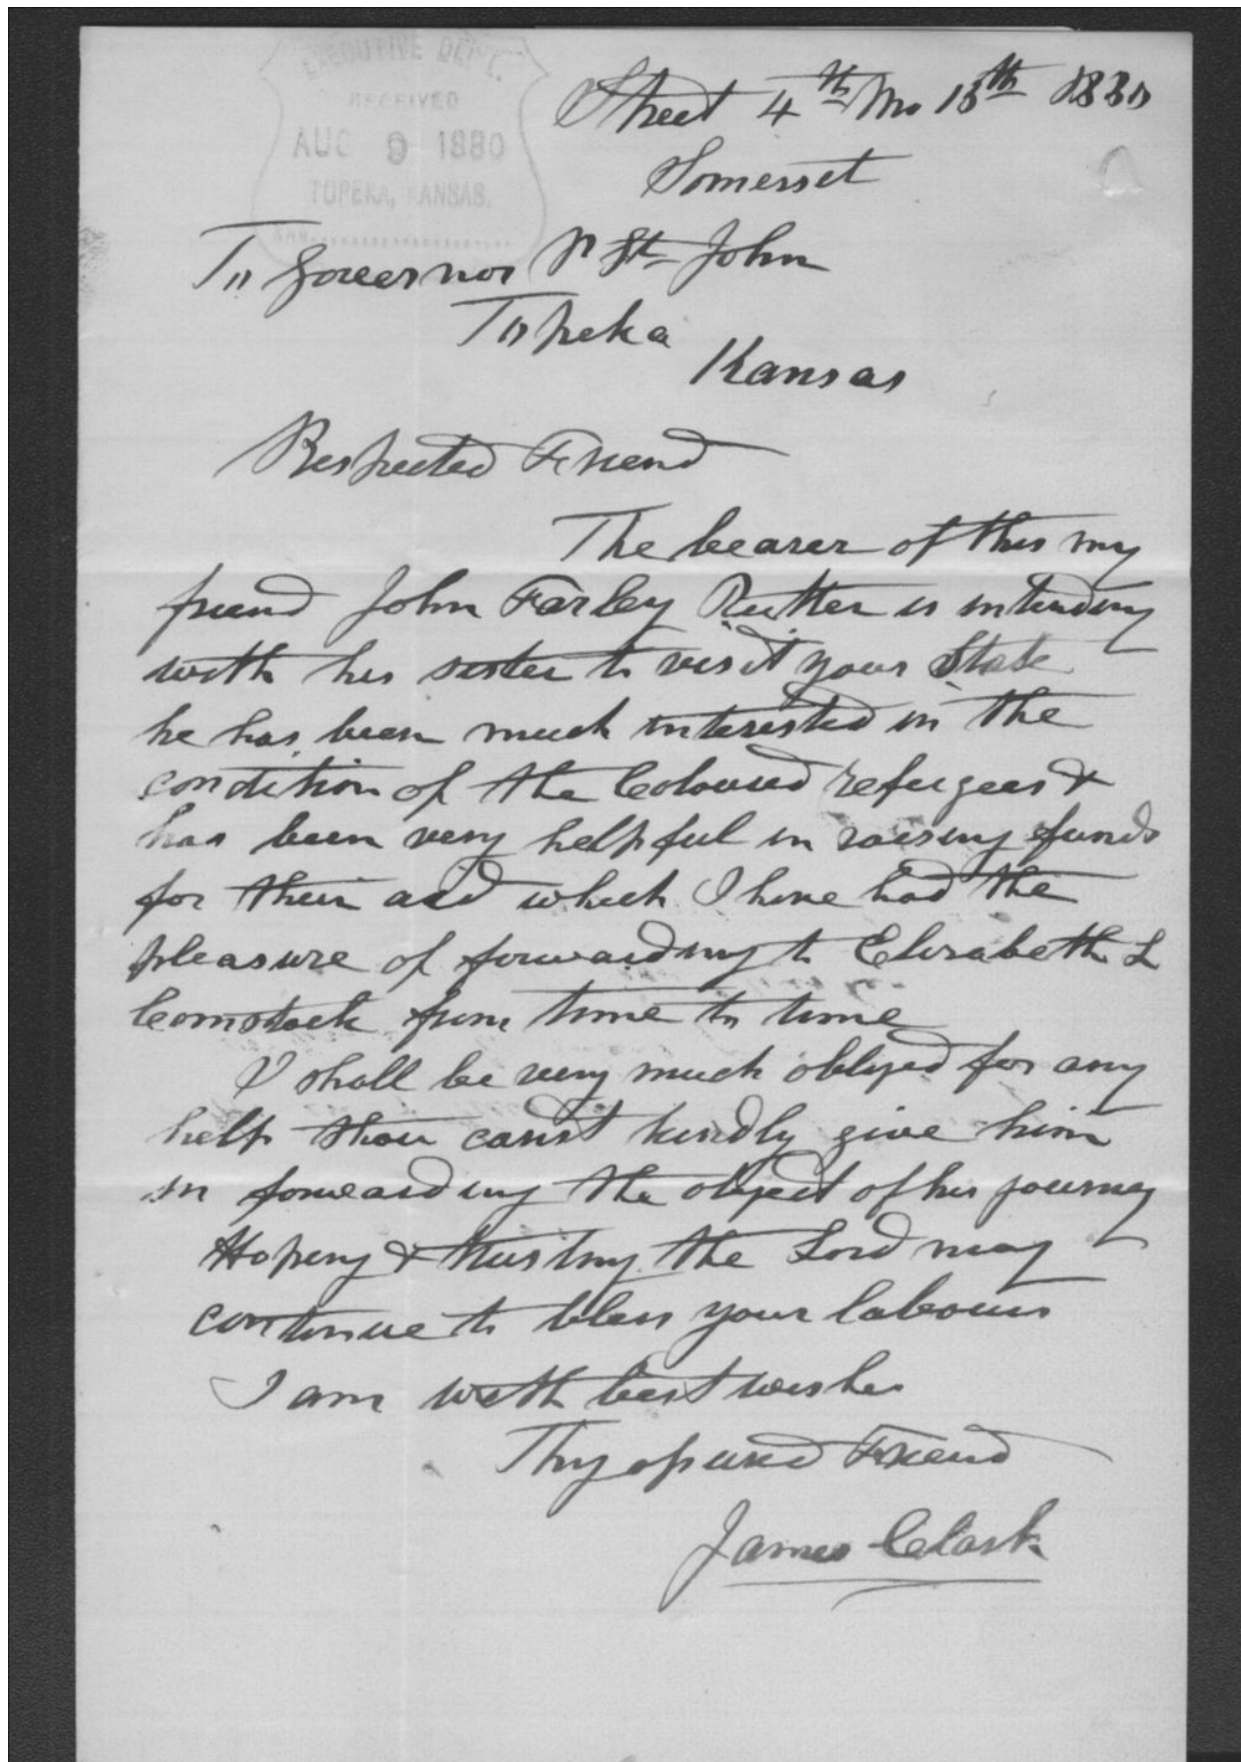 EXECUTIVE DEP'T.
RECEIVED
AUG 9 1880
TOPEKA, KANSAS.
Street 4th Mo 15th 1880
Somerset
To Governor P St John
Topeka
Kansas
Respected Friend
The bearer of this my
friend John Farley Rutter is intending
with his sister to visit your State
he has been much interested in the
condition of the Coloured refugees &
has been very helpful in raising funds
for their aid which I have had the
pleasure of forwarding to Elizabeth L
Comstock from time to time
I shall be very much obliged for any
help thou canst kindly give him
in forwarding the object of his journey
Hoping & trusting the Lord may
continue to bless your labours
I am with best wishes
Thy Friend
James Clark